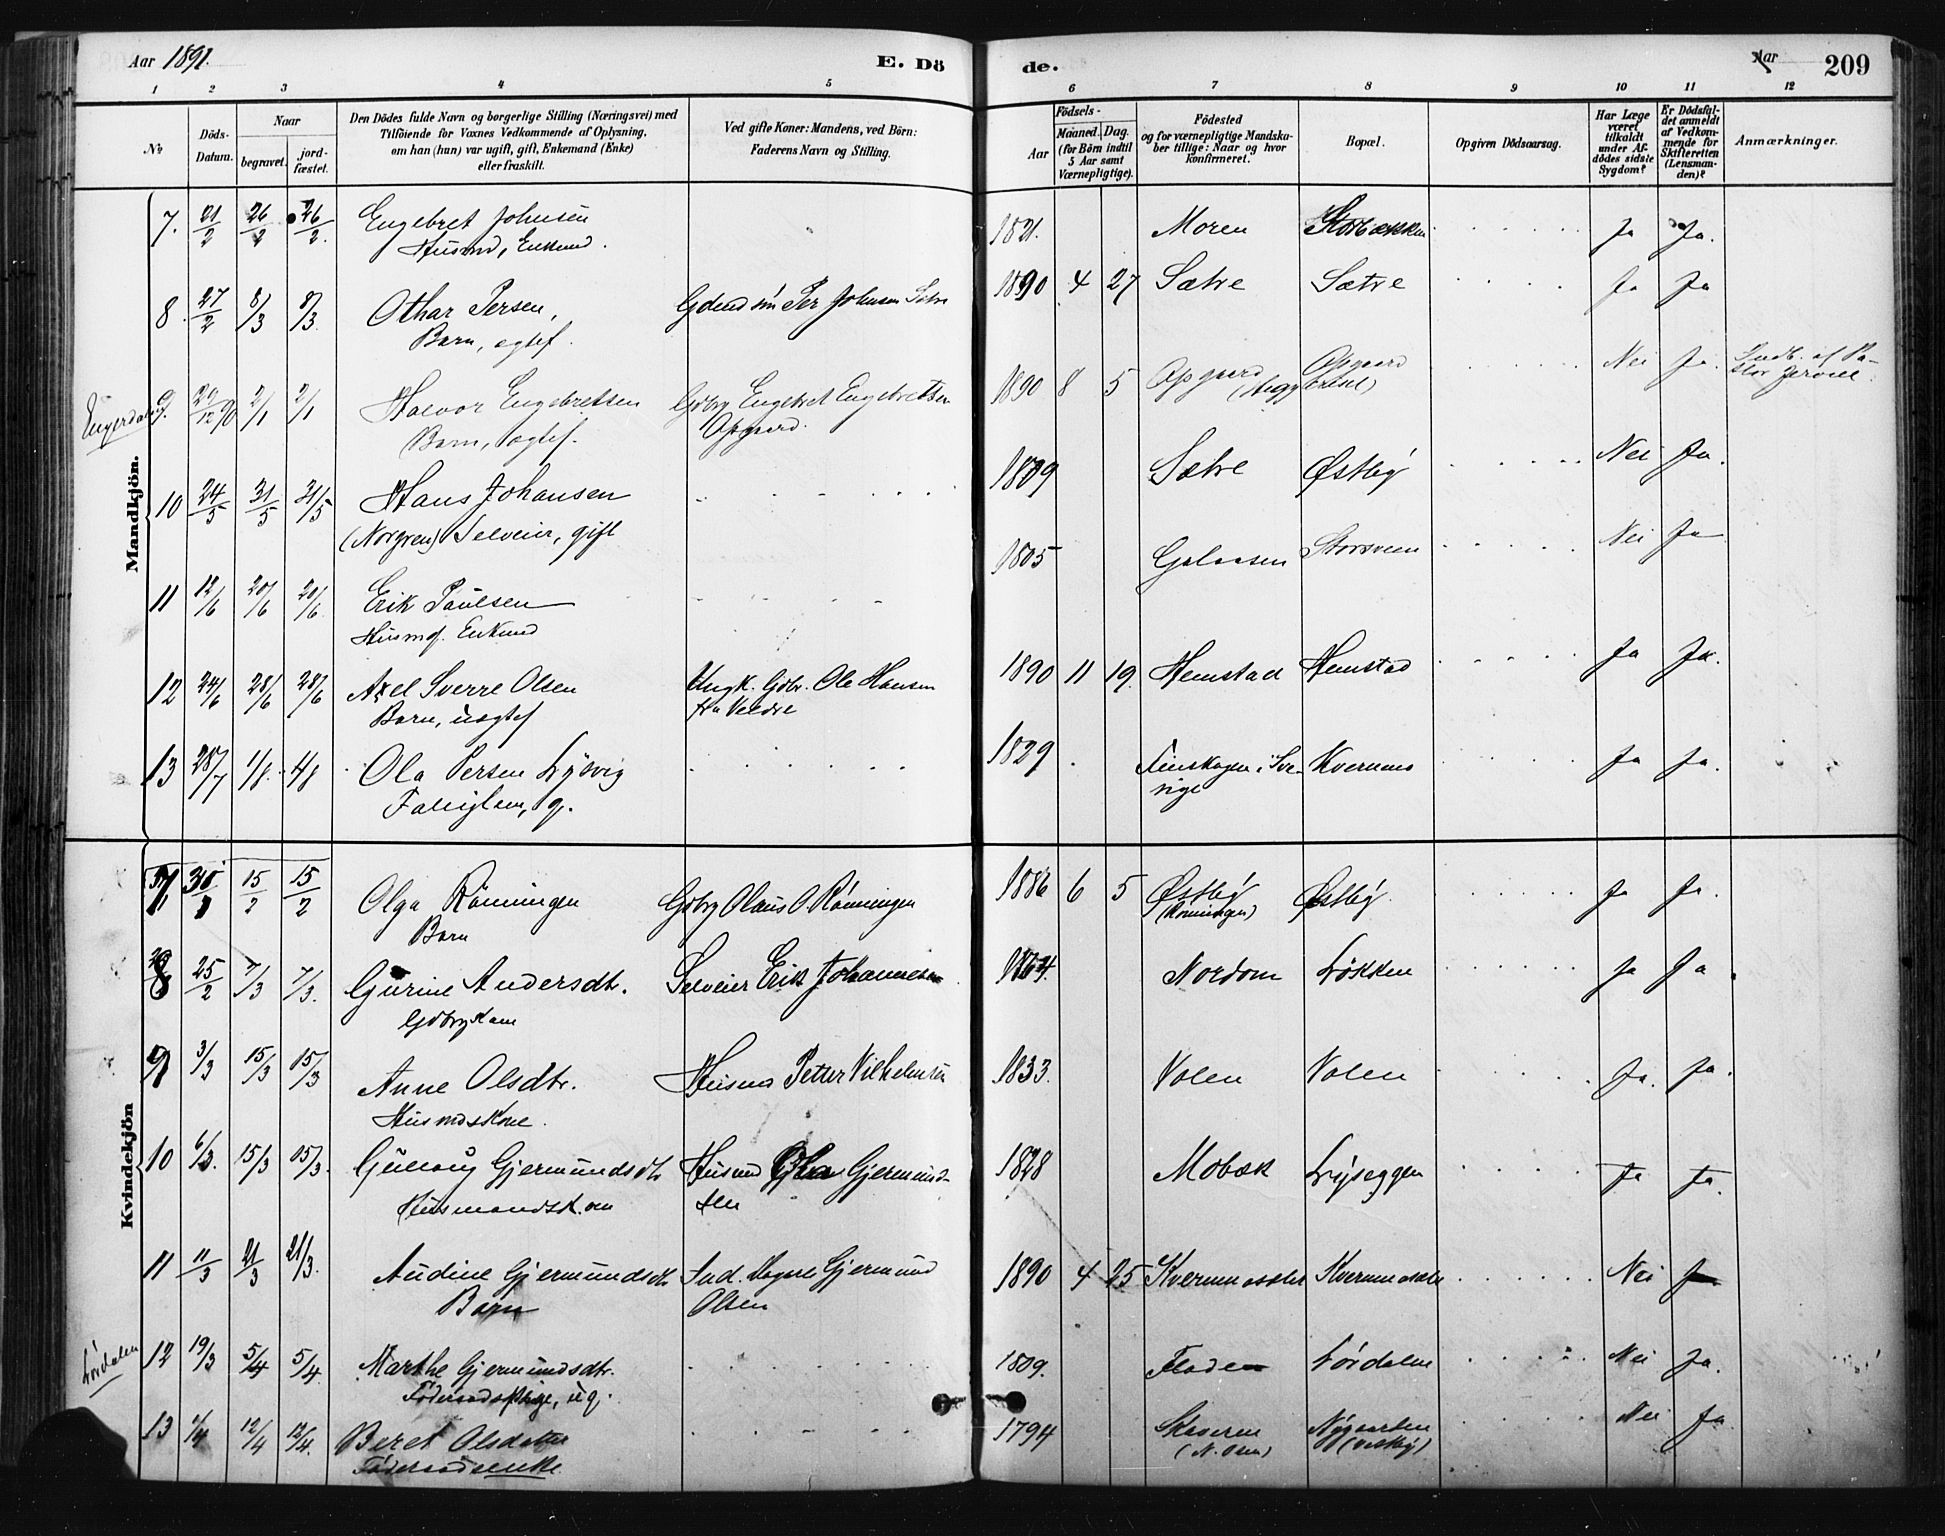 Aar 1891.
E. Dö
de.
Aar
209
1 2 3 4 5 6 7 8 9 10 11 12
No
Döds-Datum.
Naar
begravet.
jord-fæstet.
Den Dödes fulde Navn og borgerlige Stilling (Næringsvei) med
Tilföiende for Voxnes Vedkommende af Oplysning,
om han (hun) var ugift, gift, Enkemand (Enke)
eller fraskilt.
Ved gifte Koner: Mandens, ved Börn:
Faderens Navn og Stilling.
Födsels-
Aar
Maaned.
Dag.
(for Börn indtil
5 Aar samt
Værnepligtige).
Födested
og for værnepligtige Mandska-
ber tillige: Naar og hvor
konfirmeret.
Bopæl.
Opgiven Dödsaarsag.
Har Læge
været
tilkaldt
under Af-
dödes sidste
Sygdom?
Er Dödsfal-
det anmeldt
af Vedkom-
mende for
Skifteretten
(Lensman-
den)?
Anmærkninger.
Mandkjön.
7. 21/2 26/2 26/2. Engebret Johnsen 1821. Moren Storbækken Ja Ja.
Husmd, Enkemd.
8. 27/2 8/3 8/3. Othar Persen, Per Johnsen Sætre 1890 4 27 Sætre Sætre Ja Ja
Barn, ægtef.
Engerdalen
9. 2/1 2/1 Halvor Engebretsen Gdbr Engebret Engebretsen 1890 8 5 Opgaard Opgaard Nei Ja. Indb. af Pa-
Barn, ægtef. Opgaard. stor
10 24/5 31/5 31/5 Hans Johansen 1809 Sætre Østby Nei Ja.
(Norgren) Selveier, gift
11 12/6 20/6 20/6. Erik Paulsen 1805 Galaasen Storsveen Nei Ja
Husmd. Enkemd
12 24/6 28/6 28/6 Axel Sverre Olsen Ungk. Gdbr. Ole Hansen 1890 11 19. Hemstad Hemstad Ja Ja.
Barn, uægtef fra Veldre
13 28/7 1/8. 4/8 Ola Persen Lysvig 1829. Finskogen i Sve- Kvernmo Ja Ja.
Fattiglem, g. rige
Kvindekjön
7 15/2 15/2 Olga Rönningen Gdbr Olaus O. Rönningen 1886 6 5 Østby Østby. Ja Ja.
Barn (Rönningen)
8 25/2 7/3 7/3. Gurine Andersdtr. Selveier Erik Johannesen Nordom Løkken Ja Ja
Gdbrkone
9 3/3 15/3 15/3 Anne Olsdtr. Husmd Petter Vilhelmsen 1833. Volen Volen Ja. Ja.
Husmdskone.
10 6/3. 15/3 15/3. Gunnoug Gjermundsdtr Husmd Ola Gjermund- 1828 Mobæk Lyseggen Ja Ja.
Husmandsk.one sen
11 11/3 21/3 21/3. Audine Gjermundsdtr Ind. Gjermund 1890 4 25 Kvernmosæter Kvernmosæter Nei Ja
Barn Olsen
Lördalen
12 19/3 5/4 5/4. Marthe Gjermundsdtr. 1809. Floden Lördalen Nei Ja.
Föderaadspige, ug.
13 1/4 12/4 12/4. Beret Olsdatter 1794 Skaseren Nygaarden Nei Ja
Föderaadsenke (N. Osen) (Østby)